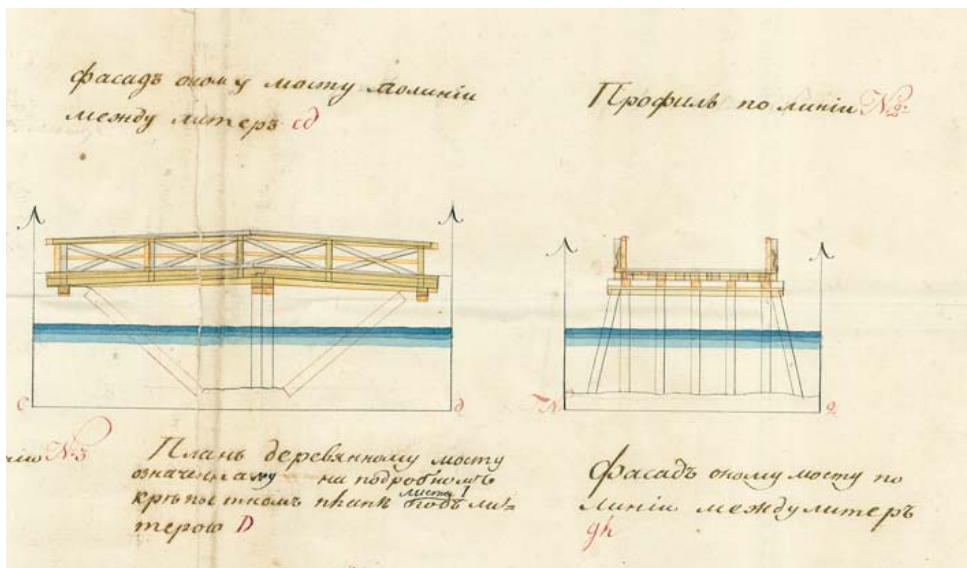 фасадъ оному мосту полинiи
между литеръ cd
Профиль по линiи №2:
c
d
№
2
№3
Планъ деревянному мосту
означенному на подробномъ
крѣпостномъ планѣ листъ 1 подъ ли=
терою D
фасадъ оному мосту по
линiи между литеръ
gh